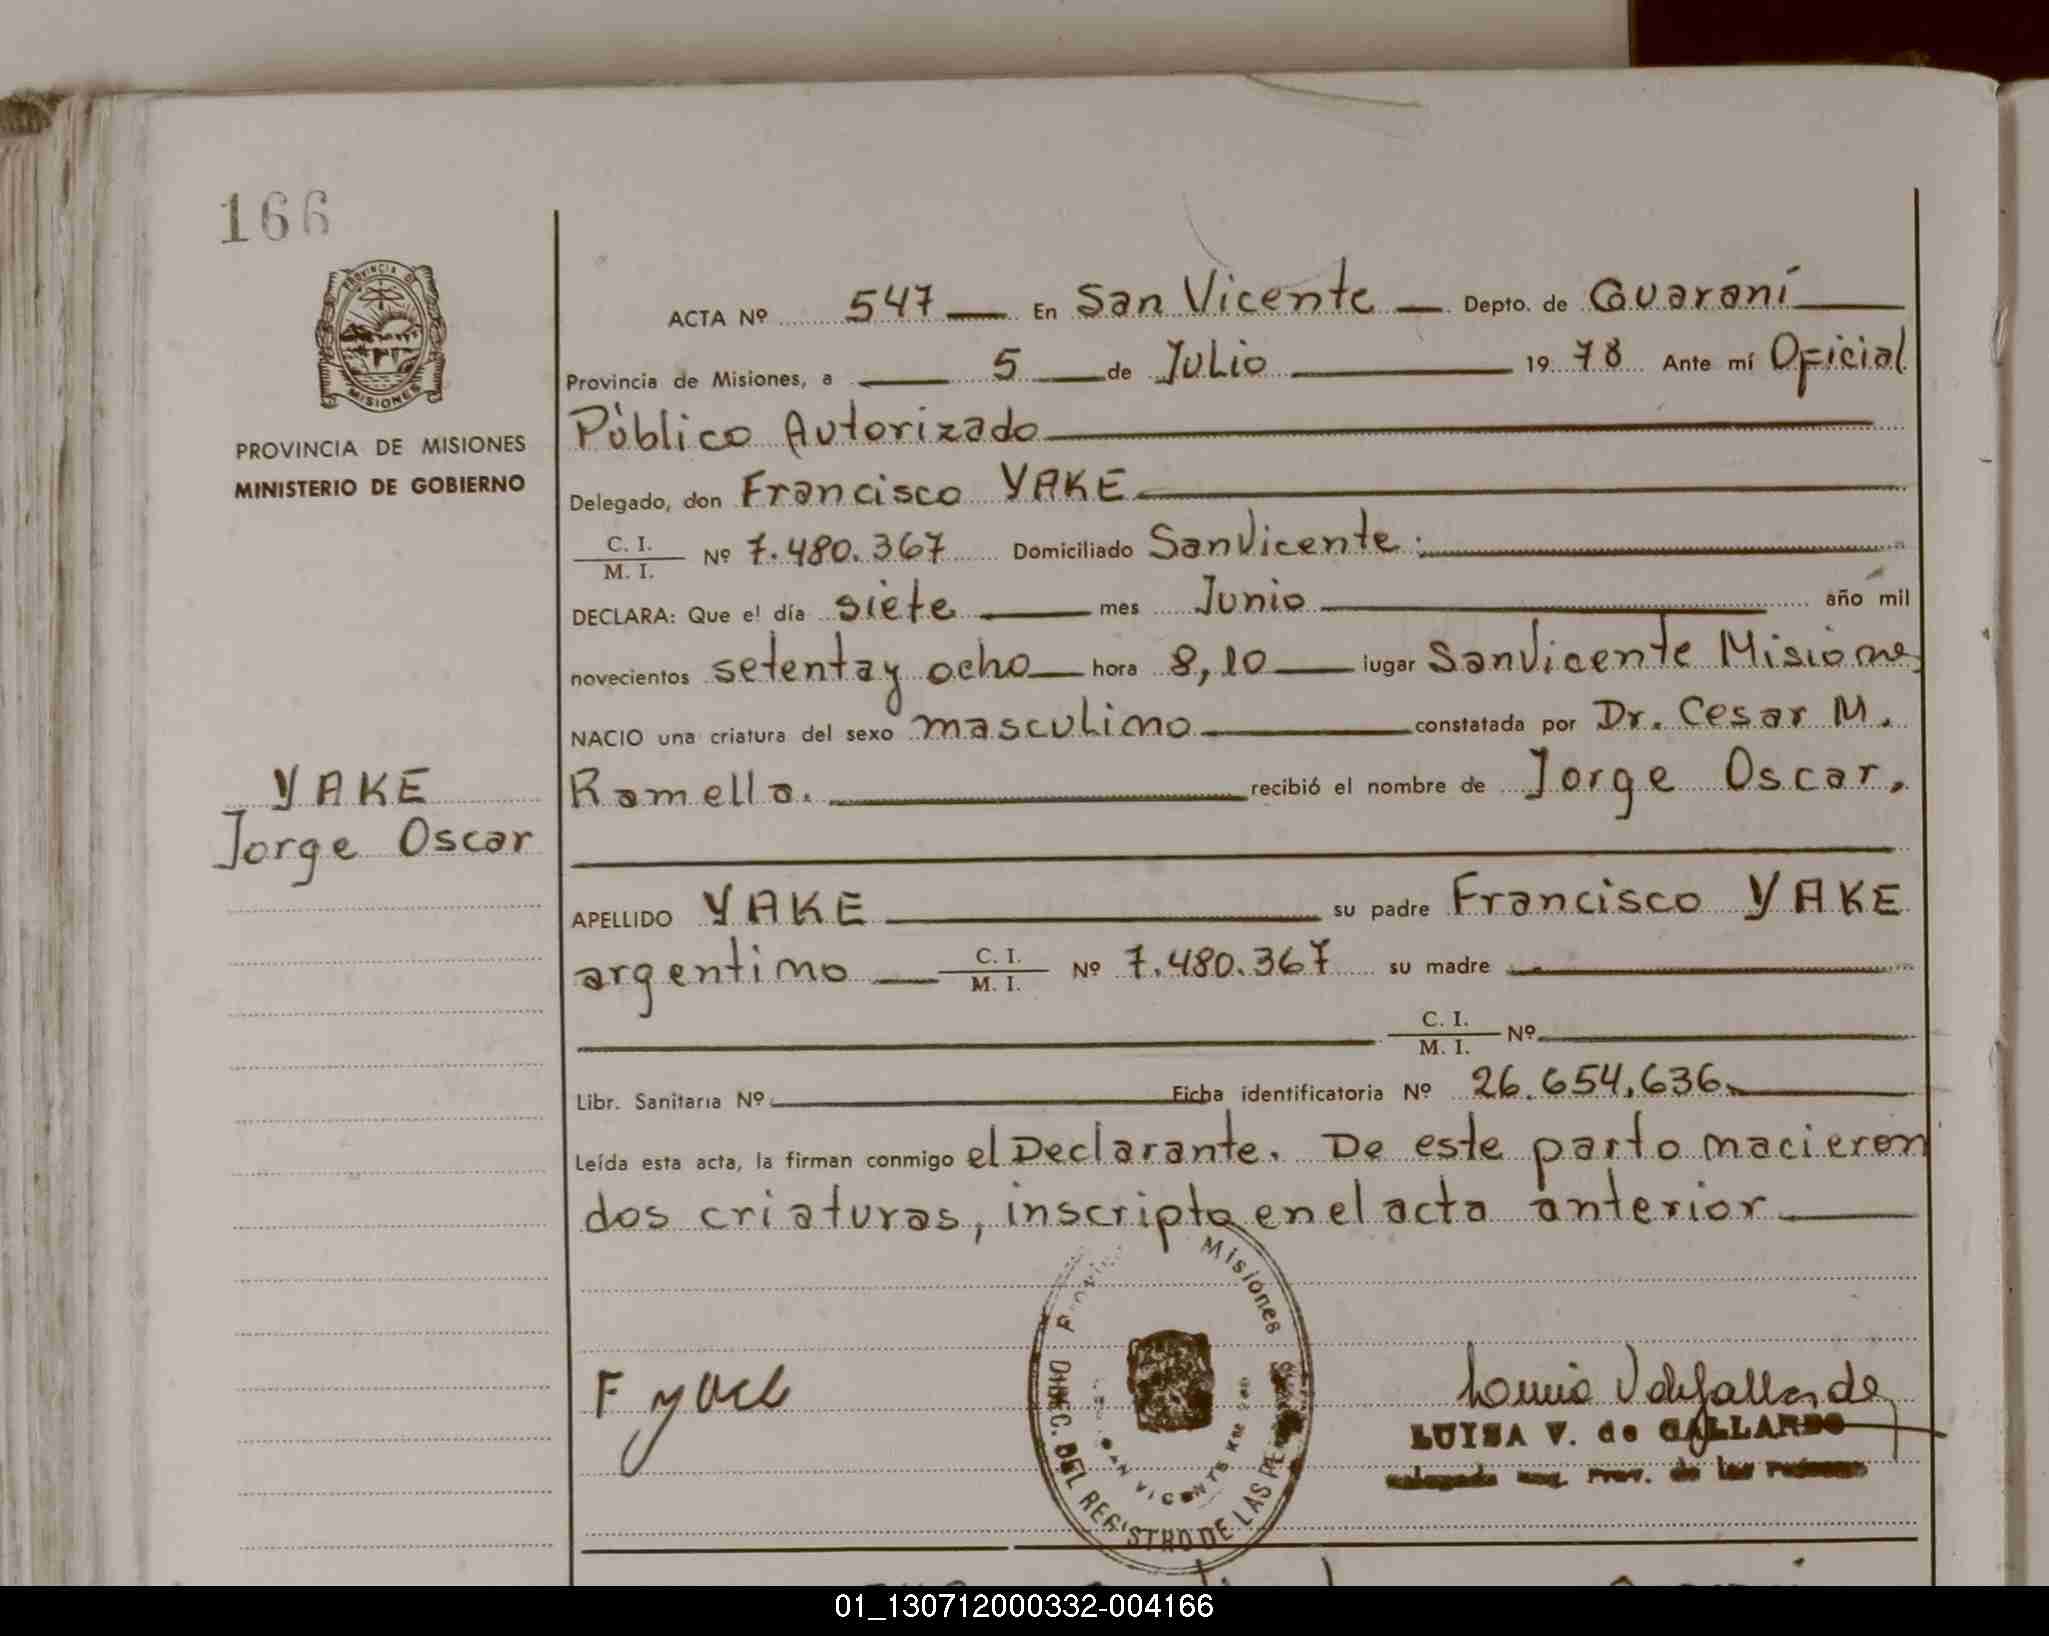 166
PROVINCIA DE MISIONES
PROVINCIA DE MISIONES
MINISTERIO DE GOBIERNO
YAKE
Jorge Oscar
ACTA Nº 547 En San Vicente Depto. de Guaraní
Provincia de Misiones, a 5 de Julio 19 78 Ante mí Oficial
Público Autorizado
Delegado, don Francisco YAKE
C. I. / M. I. Nº 7.480.367 Domiciliado San Vicente.
DECLARA: Que el día siete mes Junio año mil
novecientos setenta y ocho hora 8,10 lugar San Vicente Misiones
NACIO una criatura del sexo masculino constatada por Dr. Cesar M.
Ramella. recibió el nombre de Jorge Oscar.
APELLIDO YAKE su padre Francisco YAKE
argentino C. I. / M. I. Nº 7.480.367 su madre
C. I. / M. I. Nº
Libr. Sanitaria Nº Ficha identificatoria Nº 26.654.636
Leída esta acta, la firman conmigo el Declarante. De este parto nacieron
dos criaturas, inscripto en el acta anterior
Misiones
DIREC. DEL REGISTRO DE LAS
SAN VICENTE KM
F yake
LUISA V. de GALLARDO
01_130712000332-004166